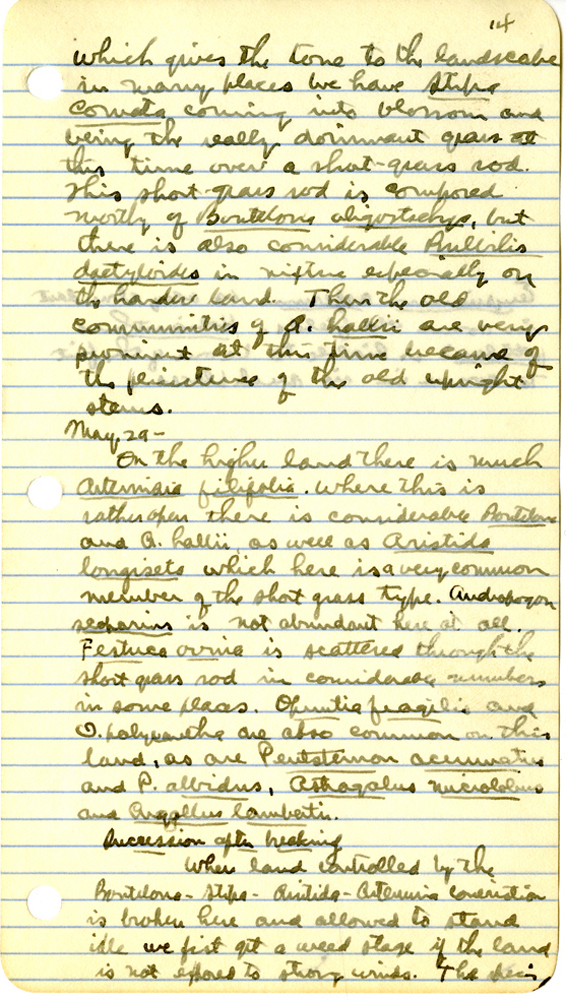 14
which gives the tone to the landscape
in many places we have Stipa
comata coming into blossom and
being the really dominant grass at
this time over a short-grass sod.
This short-grass sod is composed
mostly of Bouteloua oligostachya, but
there is also considerable Bulbilis
dactyloides in mixture especially on
the harder land. Then the old
communities of A. hallii are very
prominent at this time because of
the persistence of the old upright
stems.
May, 29-
On the higher land there is much
Artemisia filifolia. Where this is
rather open there is considerable Bouteloua
and A. hallii, as well as Aristida
longiseta which here is a very common
member of the short grass type. Andropogon
scoparius is not abundant here at all.
Festuca ovina is scattered through the
short grass sod in considerable numbers
in some places. Opuntia fragilis and
O. polycantha are also common on this
land, as are Pentstemon acuminatus
and P. albidus, Astragalus microlobus
and Aragallus lamberti.
Succession after breaking
When land controlled by the
Bouteloua-Stipa-Aristida-Artemisia consociation
is broken here and allowed to stand
idle we first get a weed stage if the land
is not exposed to strong winds. The